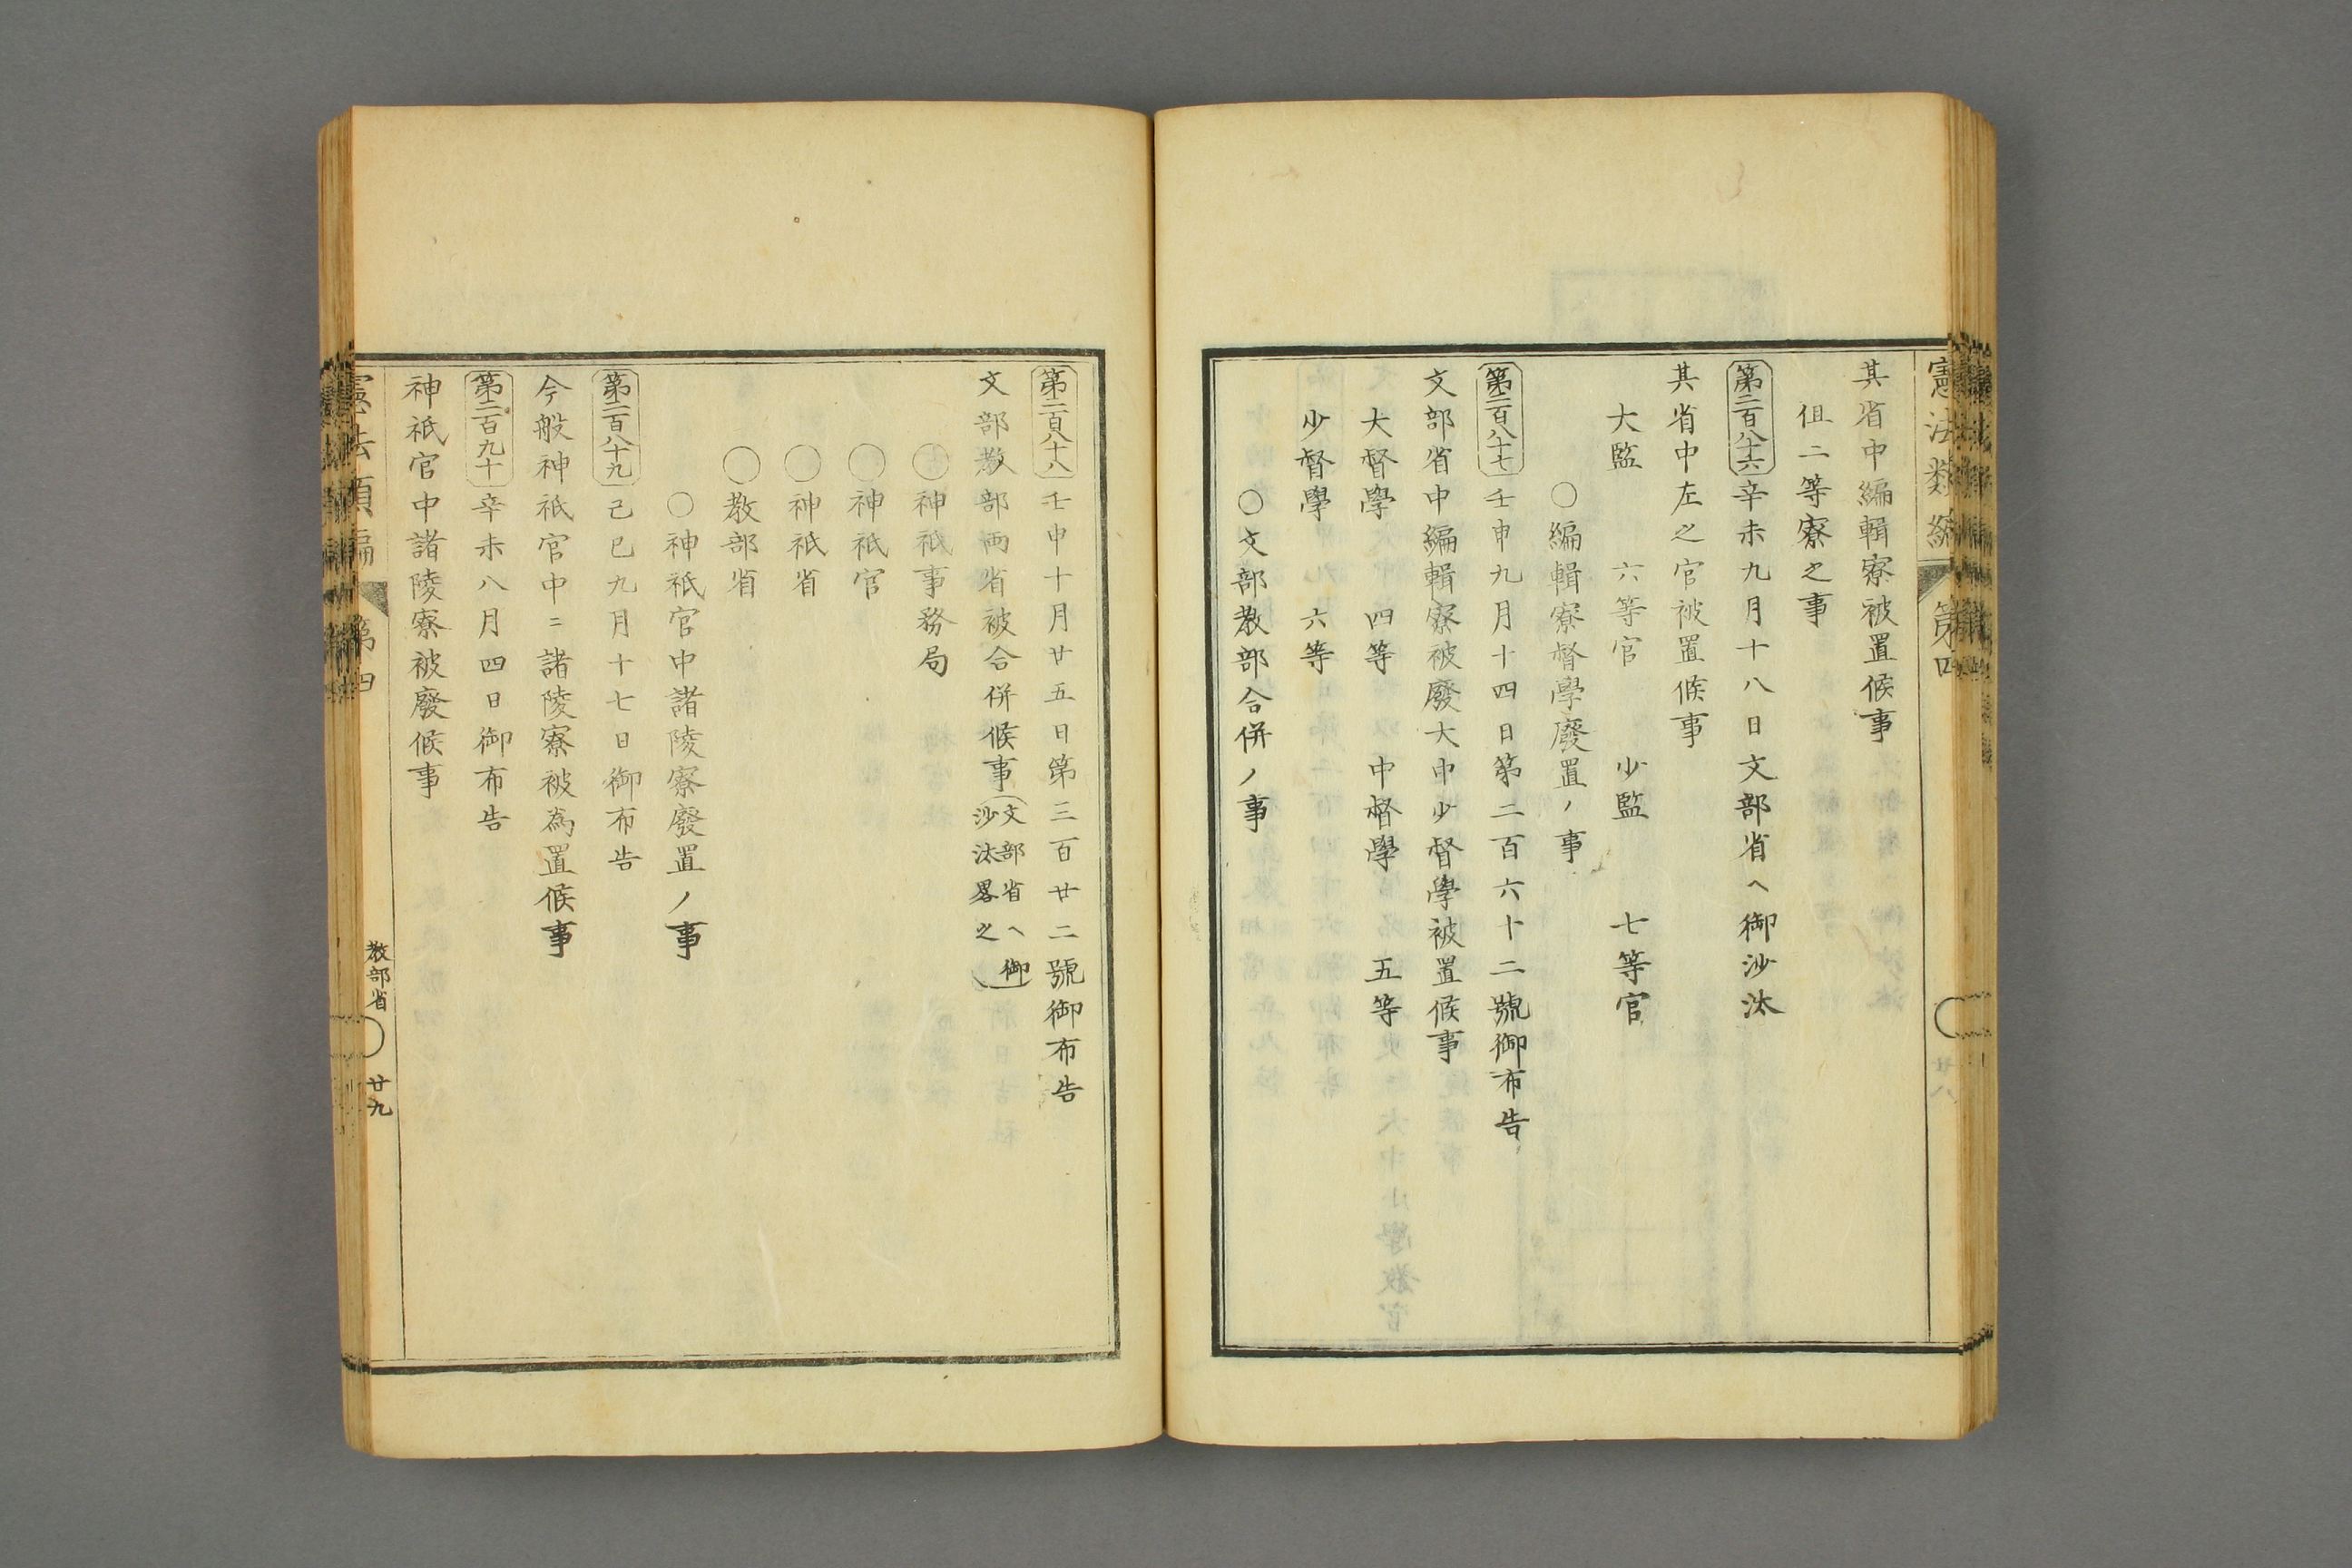 憲法類編 第四
其省中編輯寮被置候事
但二等寮之事
第二百八十六 辛未九月十八日文部省ヘ御沙汰
其省中左之官被置候事
大監 六等官 少監 七等官
○編輯寮督學廢置ノ事
第二百八十七 壬申九月十四日第二百六十二號御布告
文部省中編輯寮被廢大中少督學被置候事
大督學 四等 中督學 五等
少督學 六等
○文部教部合併ノ事
廿八
第二百八十八 壬申十月廿五日第三百廿二號御布告
文部教部両省被合併候事(文部省ヘ御
沙汰畧之)
○神祇事務局
○神祇官
○神祇省
○教部省
○神祇官中諸陵寮廢置ノ事
第二百八十九 己巳九月十七日御布告
今般神祇官中ニ諸陵寮被為置候事
第二百九十 辛未八月四日御布告
神祇官中諸陵寮被廢候事
憲法類編 第四 教部省 廿九